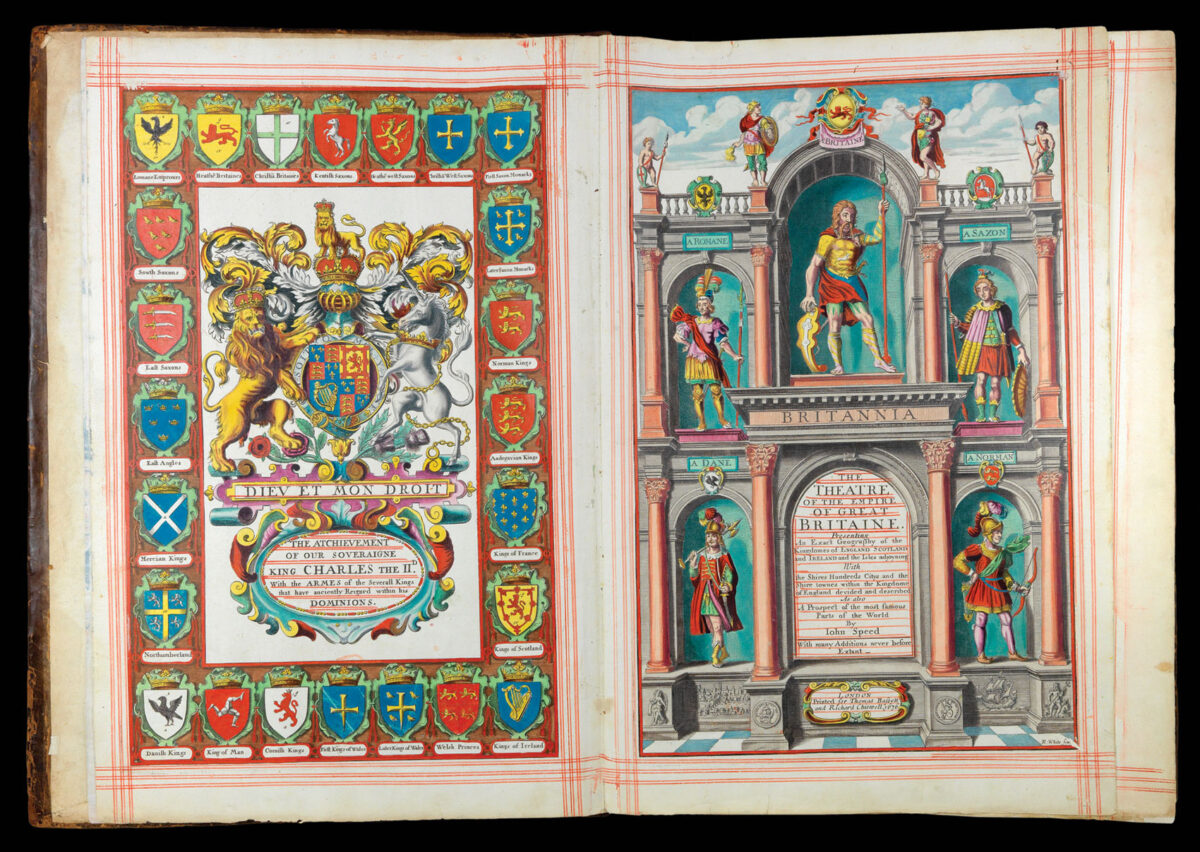 Heathē Bretaines
Christiā Britaines
Kentish Saxons
Heathē west Saxons
Christiā West Saxons
First Saxon Monarks
South Saxons
Later Saxon Monarks
East Saxons
Norman Kings
East Angles
Andegavian Kings
Mercian Kings
Kings of France
Northumberland
Kings of Scotland
Danish Kings
King of Man
Cornish Kings
First Kings of Wales
Later Kings of Wales
Welsh Princes
Kings of Ireland
DIEV ET MON DROIT
THE ATCHIEVEMENT
OF OUR SOVERAIGNE
KING CHARLES THE II.D
With the ARMES of the Severall Kings
that have anciently Reigned within his
DOMINIONS.
BRITAINE
A ROMANE
A SAXON
BRITANNIA
A DANE
A NORMAN
THE
THEATRE
OF THE EMPIRE
OF GREAT
BRITAINE.
Presenting
An Exact Geography of the
Kingdomes of ENGLAND SCOTLAND
and IRELAND and the Isles adjoyning
With
the Shires Hundreds Citys and the
Shire townes within the Kingdome
of England devided and described
As also
A Prospect of the most famous
Parts of the World
By
Iohn Speed
With many Additions never before
Extant
LONDON
Printed for Thomas Bassett
and Richard Chiswell 1676
R. White sculp